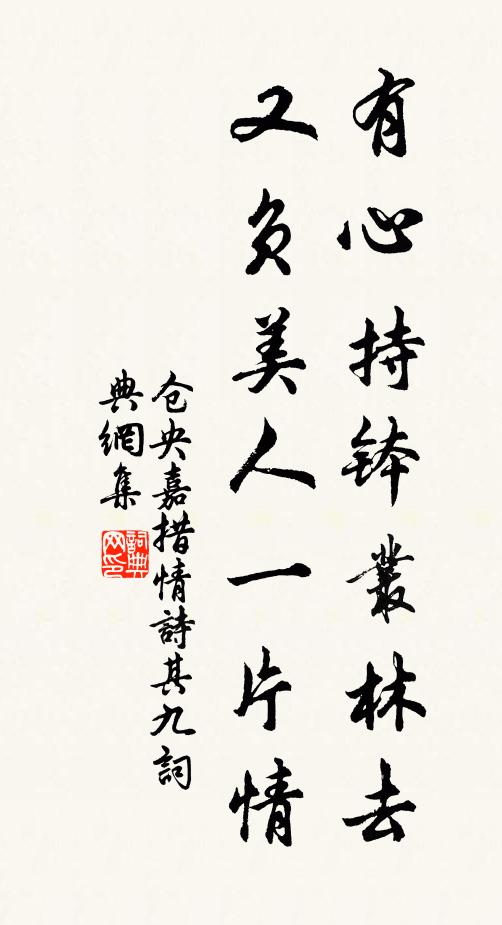 有心持钵叢林去
又负美人一片情
仓央嘉措情詩其九詞
典網集
詞典
网印